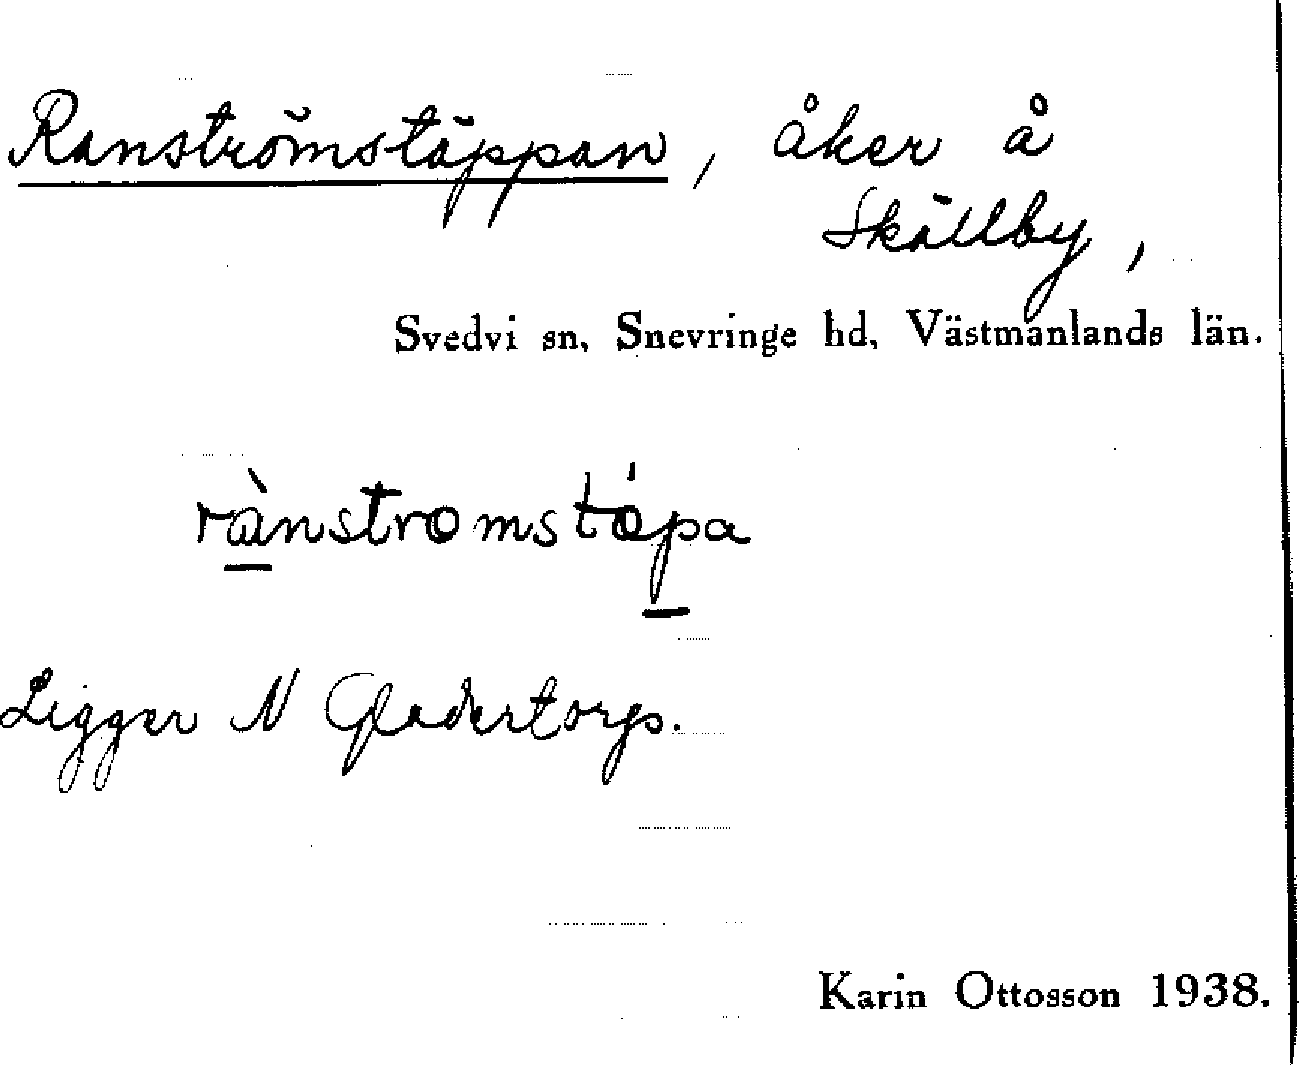 Ranströmstäppan, åker å
Skällby,
Svedvi sn, Snevringe hd, Västmanlands län.
Ligger N
Karin Ottosson 1938.